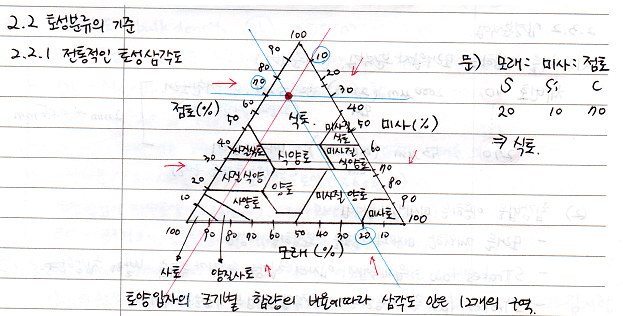 2.2 토성분류의 기준
2.2.1 전통적인 토성삼각도
문) 모래: 미사: 점토
S Si C
20 10 70
⇒ 식토.
100
90 10
80 20
70 30
60 40
50 50
40 60
30 70
20 80
10 90
100 100
점토(%)
미사(%)
식토
미사질 식토
사질식토 식양토 미사질 식양토
사질식양 양토 미사질 양토
사양토 미사토
100 90 80 70 60 50 40 30 20 10
모래(%)
사토 양질사토
토양입자의 크기별 함량의 비율에따라 삼각도 안은 12개의 구역.